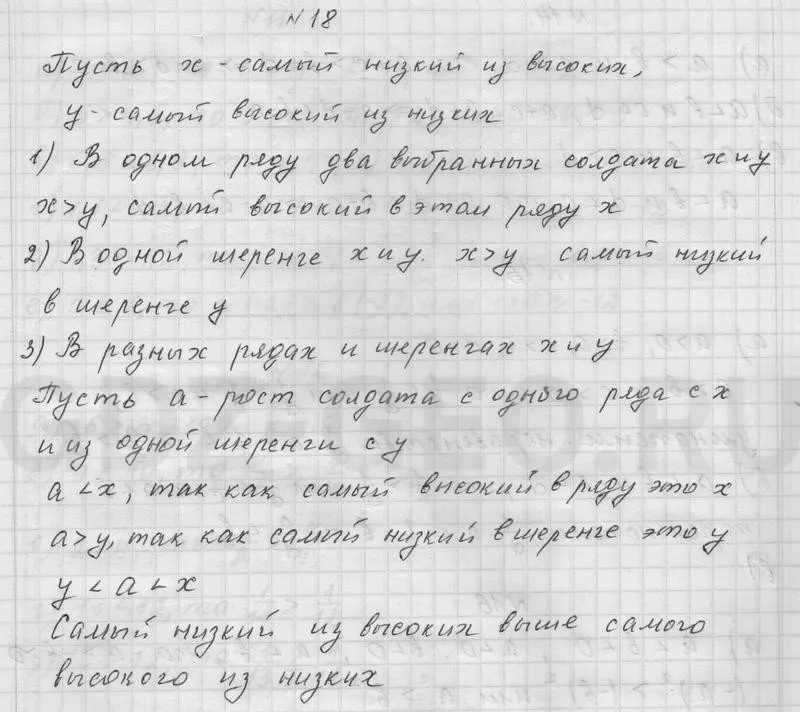 №18
Пусть x - самый низкий из высоких,
y - самый высокий из низких
1) В одном ряду два выбранных солдата x и y
x > y, самый высокий в этом ряду x
2) В одной шеренге x и y. x > y самый низкий
в шеренге y
3) В разных рядах и шеренгах x и y
Пусть a - рост солдата с одного ряда с x
и из одной шеренги с y
a < x, так как самый высокий в ряду это x
a > y, так как самый низкий в шеренге это y
y < a < x
Самый низкий из высоких выше самого
высокого из низких